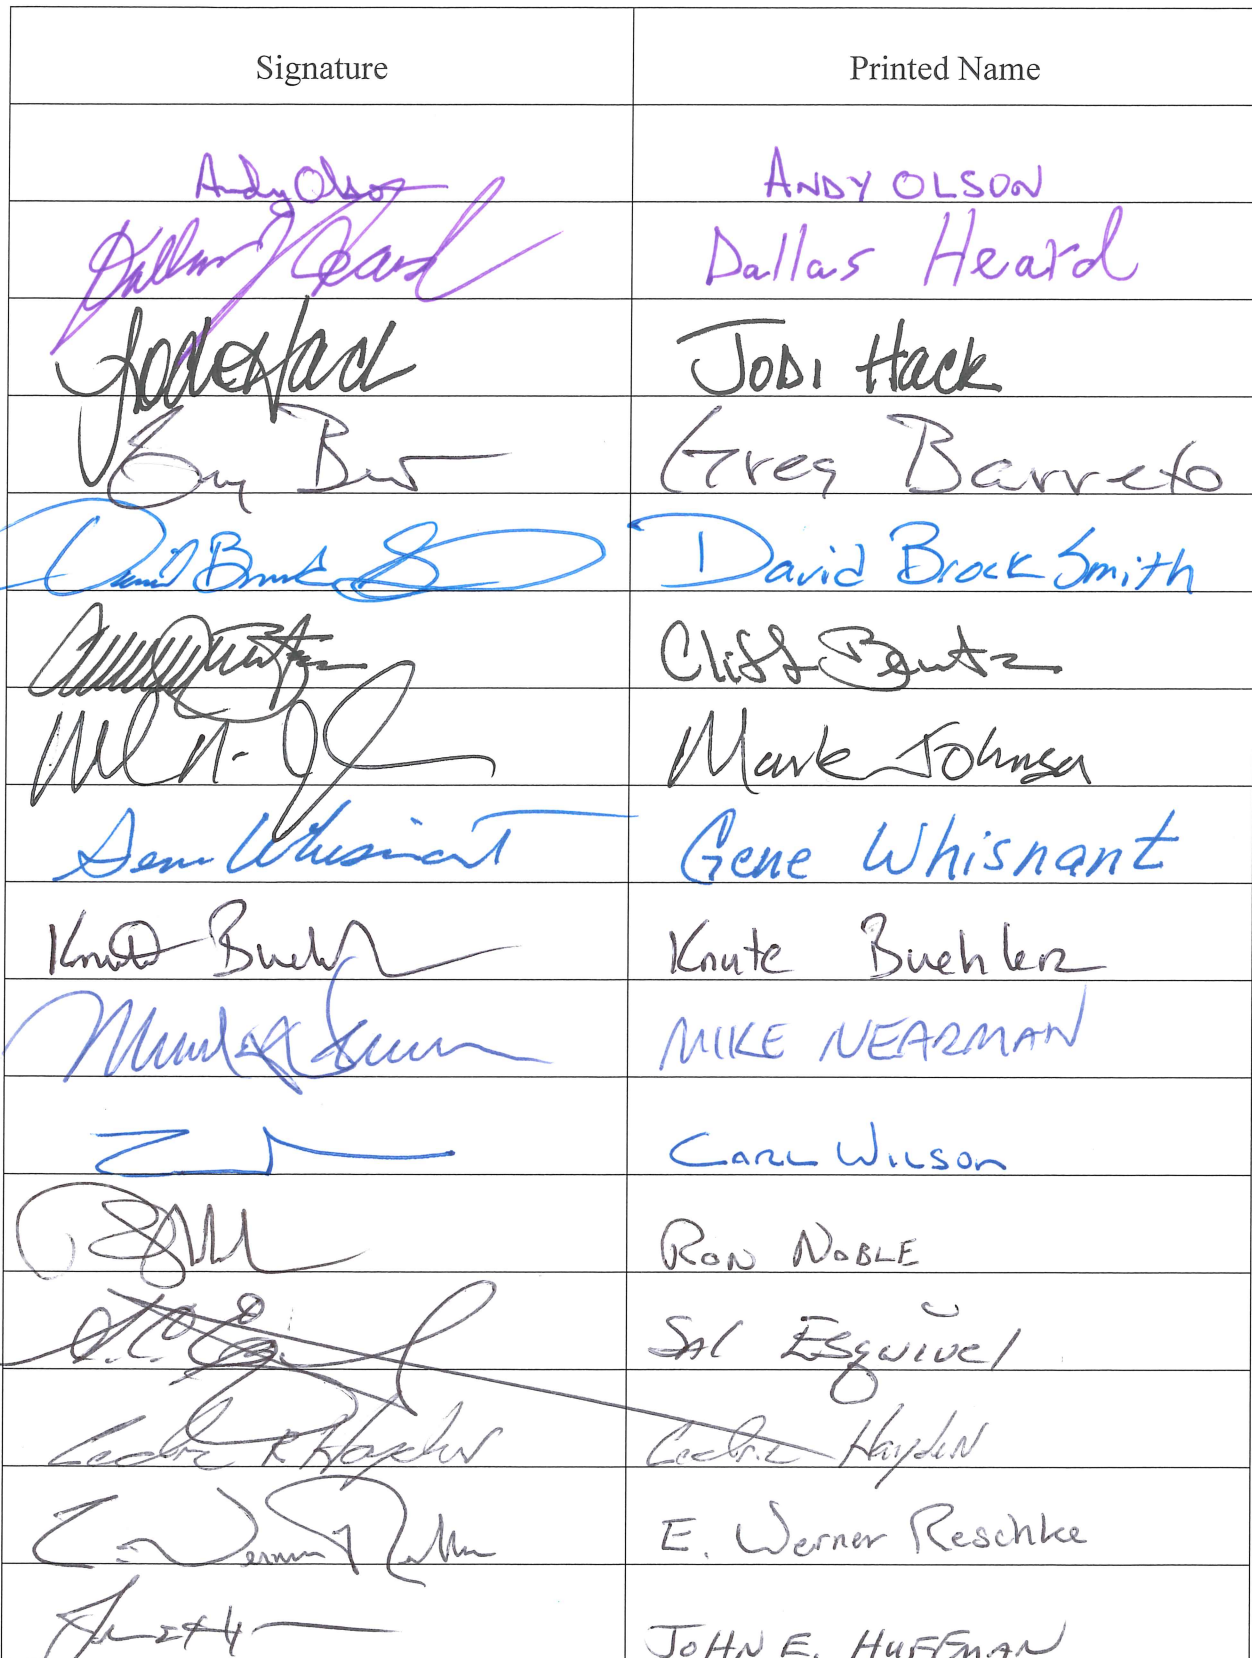 Signature Printed Name
Andy Olson ANDY OLSON
Dallas Heard Dallas Heard
Jodi Hack JODI Hack
Greg Barreto
David Brock S David Brock Smith
Cliff Bentz
Mark Johnson
Gene Whisnant Gene Whisnant
Knute Buehler Knute Buehler
MIKE NEARMAN
CARL WILSON
RON NOBLE
SAL Esquivel
Cedric R Hayden Cedric Hayden
E. Werner Reschke E. Werner Reschke
JOHN E. HUFFMAN